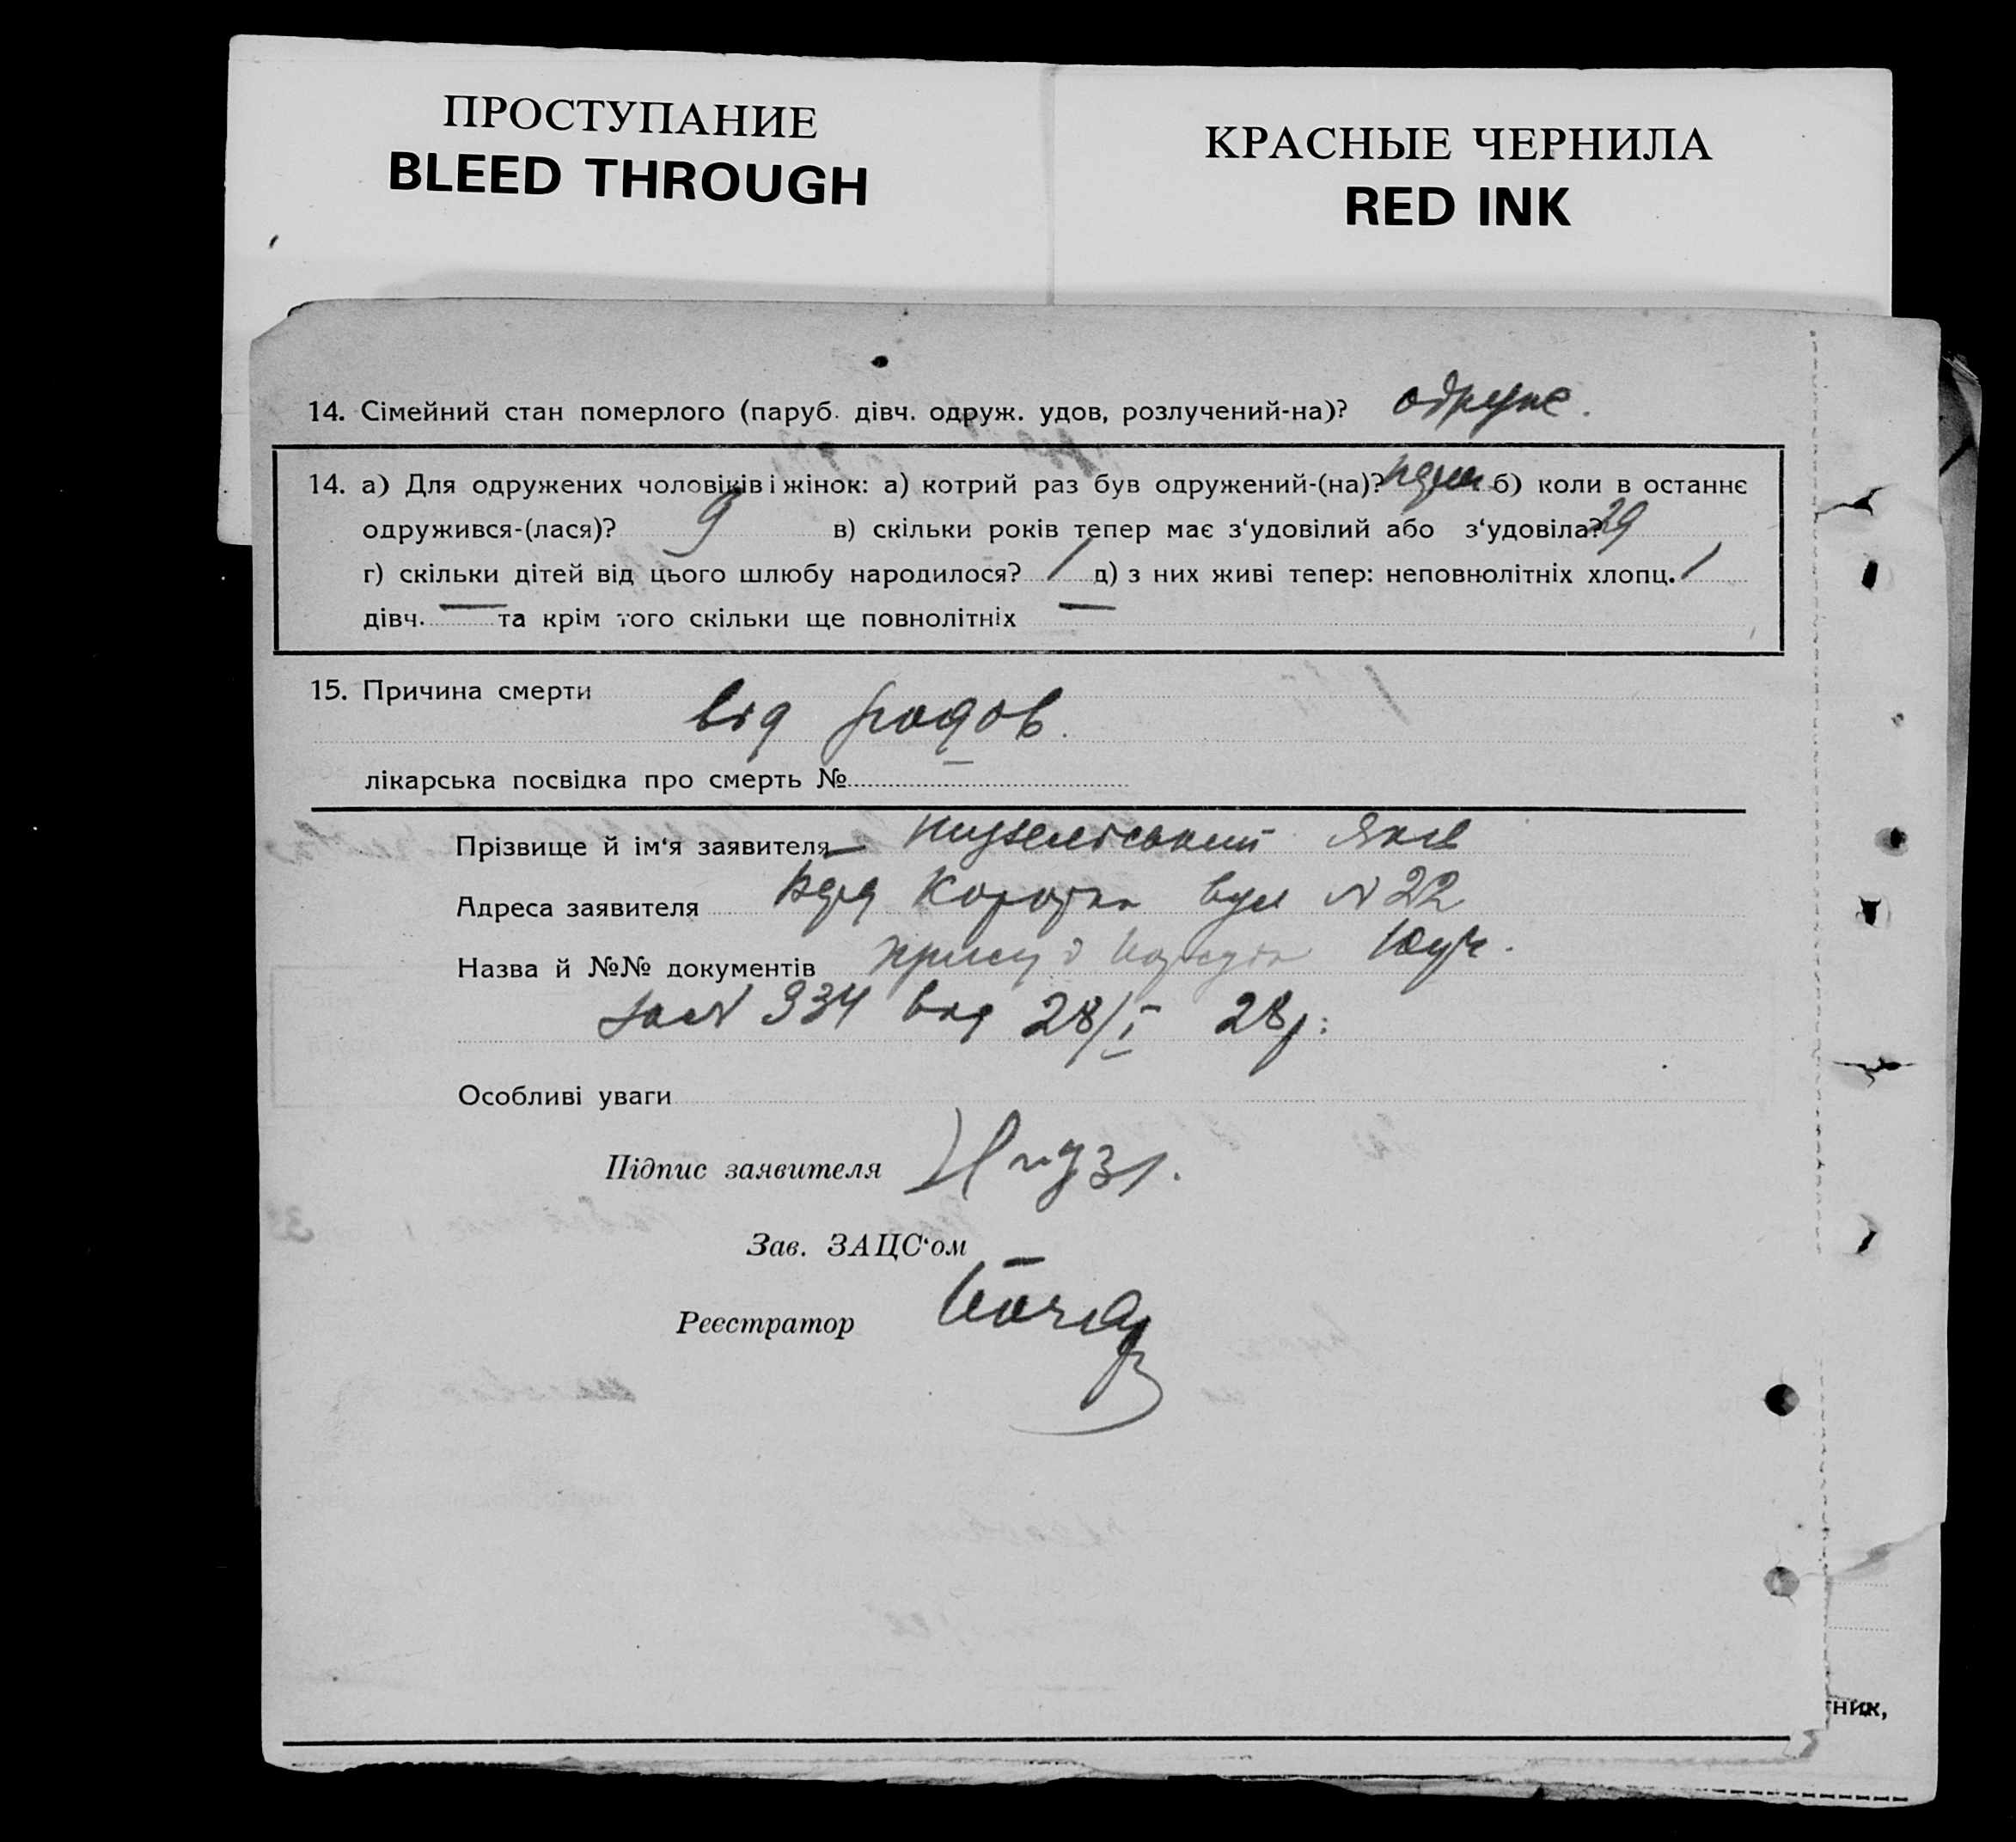 ПРОСТУПАНИЕ
BLEED THROUGH
КРАСНЫЕ ЧЕРНИЛА
RED INK
14. Сімейний стан померлого (паруб. дівч. одруж. удов, розлучений-на)? одруже.
14. а) Для одружених чоловіків і жінок: а) котрий раз був одружений-(на)? б) коли в останнє
одружився-(лася)? 9 в) скільки років тепер має з‘удовілий або з‘удовіла? 29
г) скільки дітей від цього шлюбу народилося? 1 д) з них живі тепер: неповнолітніх хлопц. 1
дівч. — та крім того скільки ще повнолітніх —
15. Причина смерти
від родов.
лікарська посвідка про смерть №
Прізвище й ім‘я заявителя Яків
Адреса заявителя Коротка вул N 22
Назва й №№ документів
за N 934 від 28/I 28р.
Особливі уваги
Підпис заявителя
Зав. ЗАЦС‘ом
Реєстратор
тник,